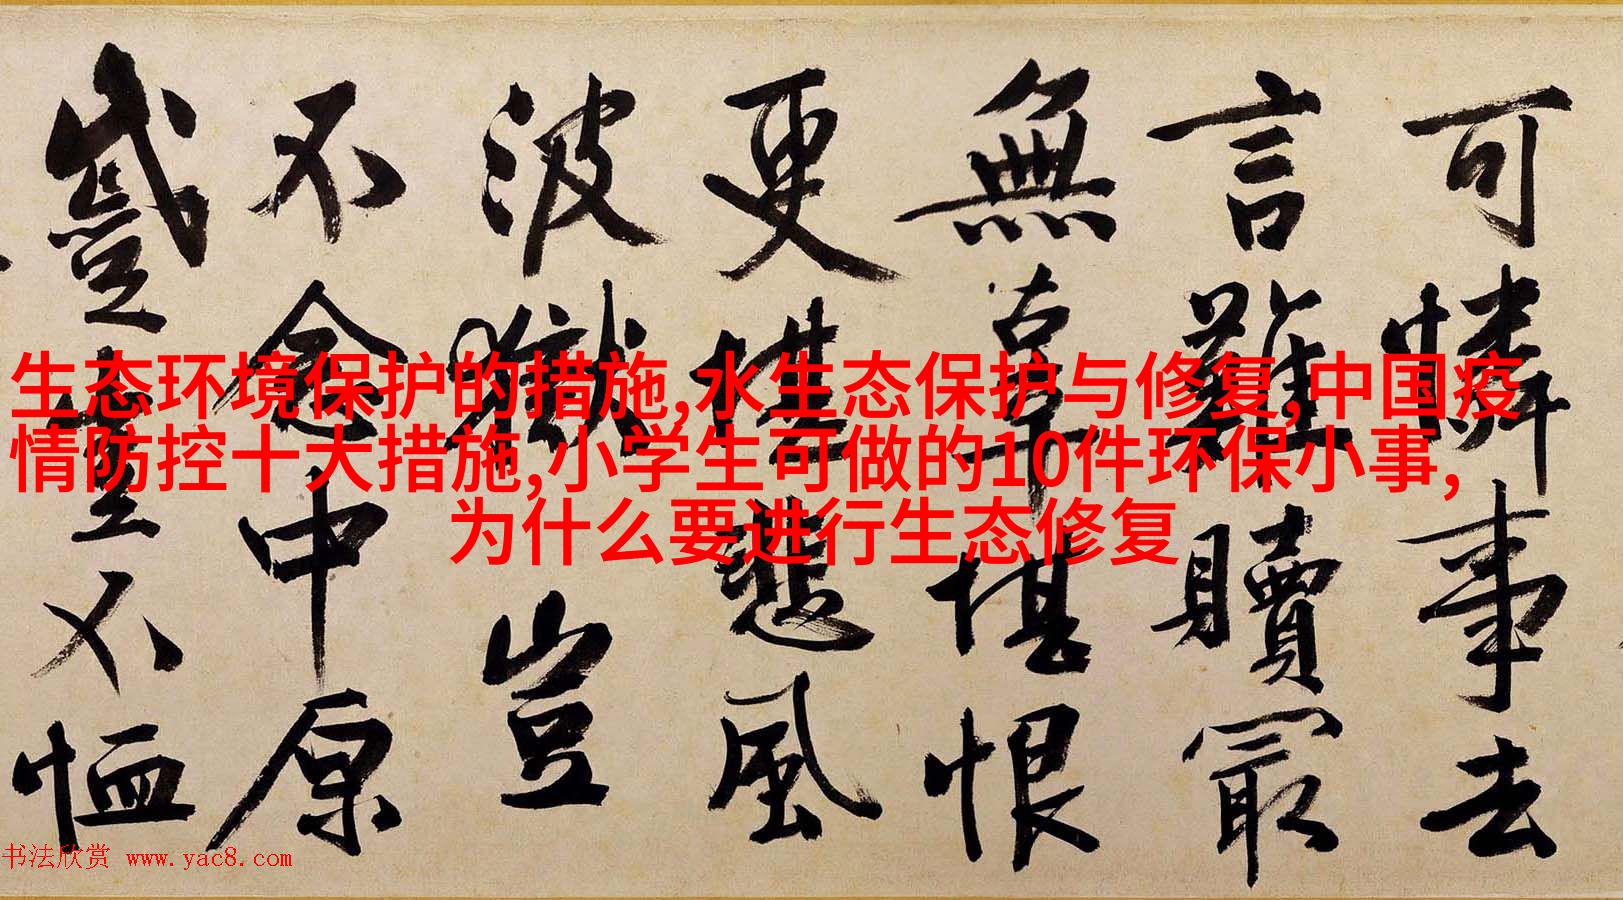 可憐事去
言難贖最
無辜堪恨
更堪悲風
波獄豈
不念中原
豈不恤
生态环境保护的措施,水生态保护与修复,中国疫
情防控十大措施,小学生可做的10件环保小事,
为什么要进行生态修复
书法欣赏 www.yac8.com